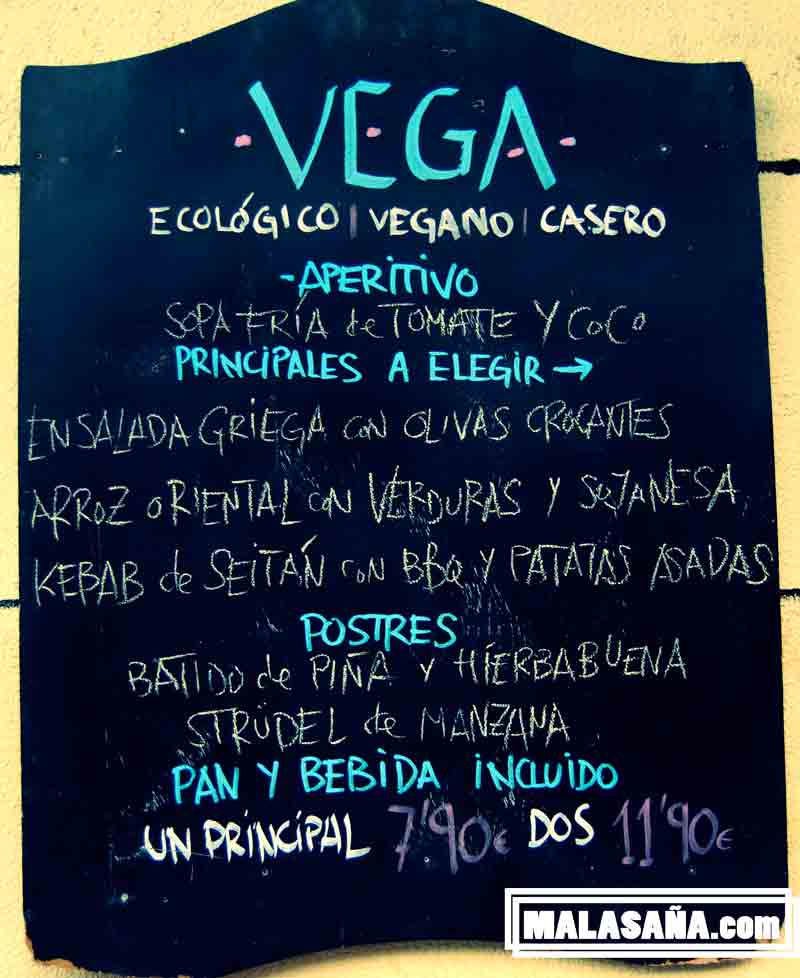 ·VEGA·
ECOLÓGICO | VEGANO | CASERO
-APERITIVO
SOPA FRÍA de TOMATE Y COCO
PRINCIPALES A ELEGIR →
ENSALADA GRIEGA con OLIVAS CROCANTES
ARROZ ORIENTAL con VERDURAS Y SOJANESA
KEBAB de SEITÁN con BBQ Y PATATAS ASADAS
POSTRES
BATIDO de PIÑA Y HIERBABUENA
STRÜDEL de MANZANA
PAN Y BEBIDA INCLUIDO
UN PRINCIPAL 7'90€ DOS 11'90€
MALASAÑA.com